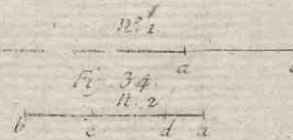 n.º 1
a
Fi 34.
n. 2
b c d a